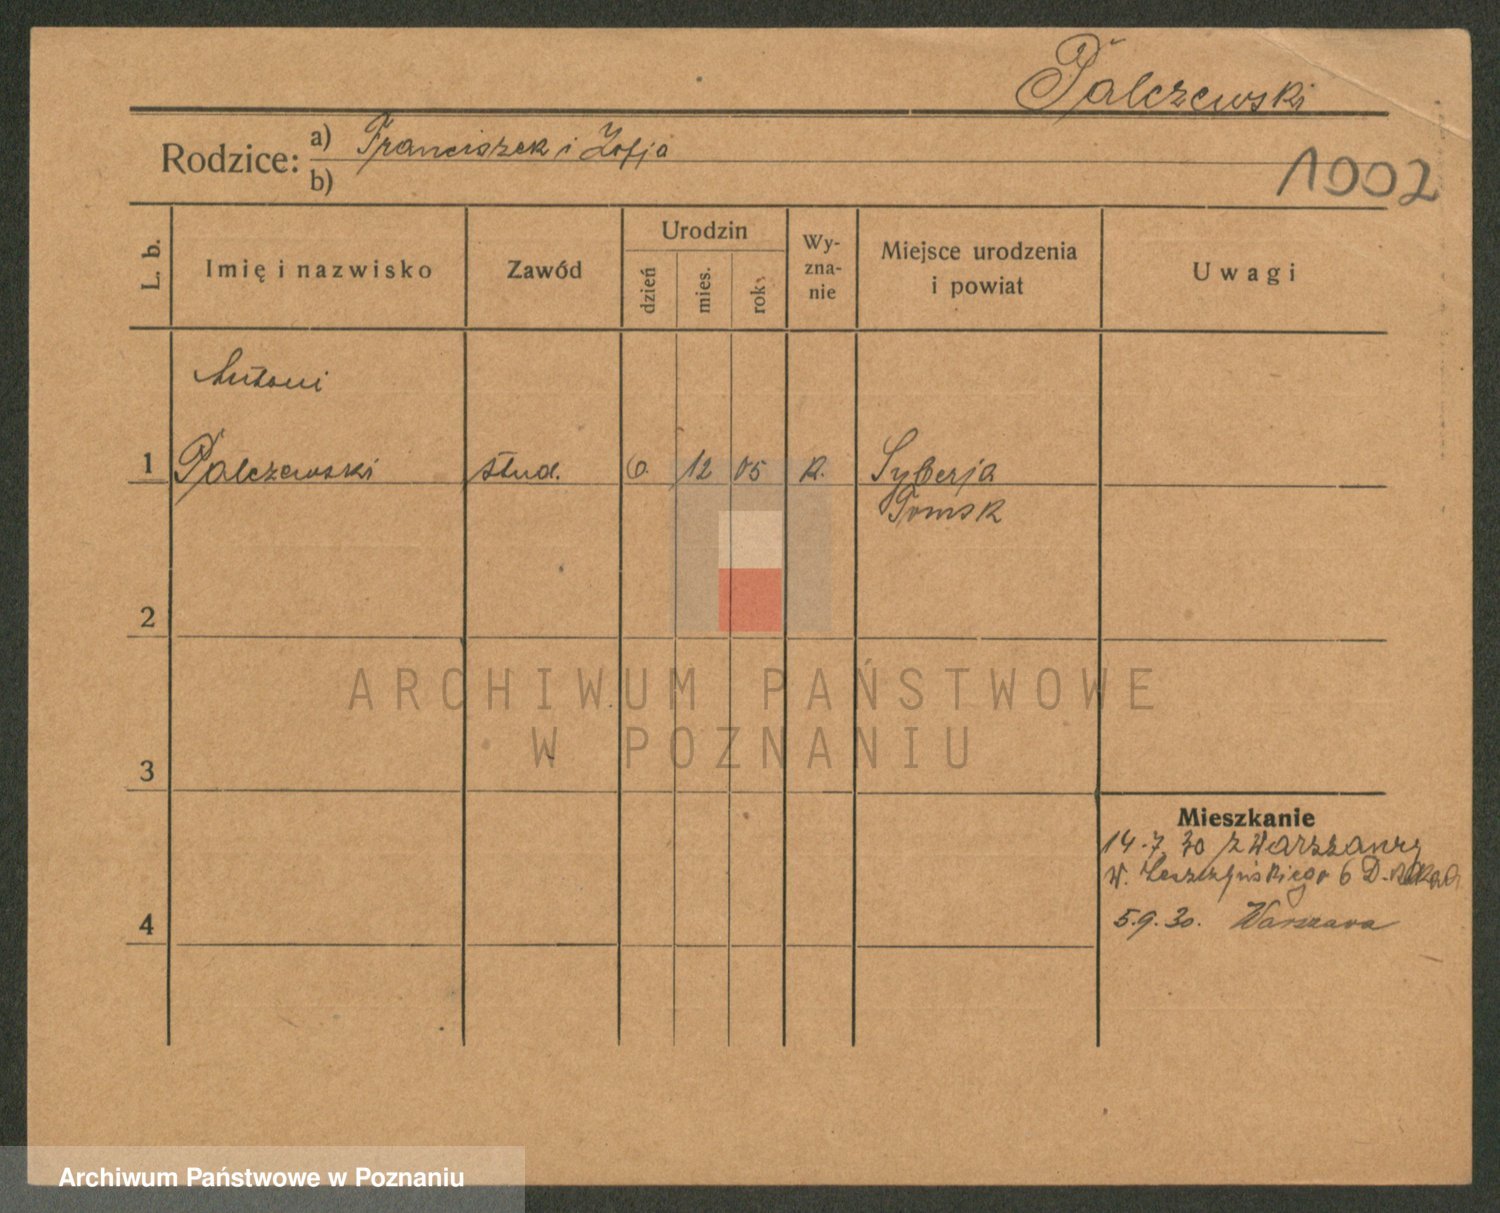 Palczewski
Rodzice: a) Franciszek i Zofja
b)
1002
L. b. Imię i nazwisko Zawód Urodzin dzień mies. rok Wy-zna-nie Miejsce urodzenia i powiat Uwagi
Antoni
1 Palczewski stud. 6. 12 05 R. Syberja
Tomsk
2
ARCHIWUM PAŃSTWOWE
W POZNANIU
3
Mieszkanie
14.7.30 z Warszawy
W. Leszczyńskiego 6
4 5.9.30. Warszawa
Archiwum Państwowe w Poznaniu